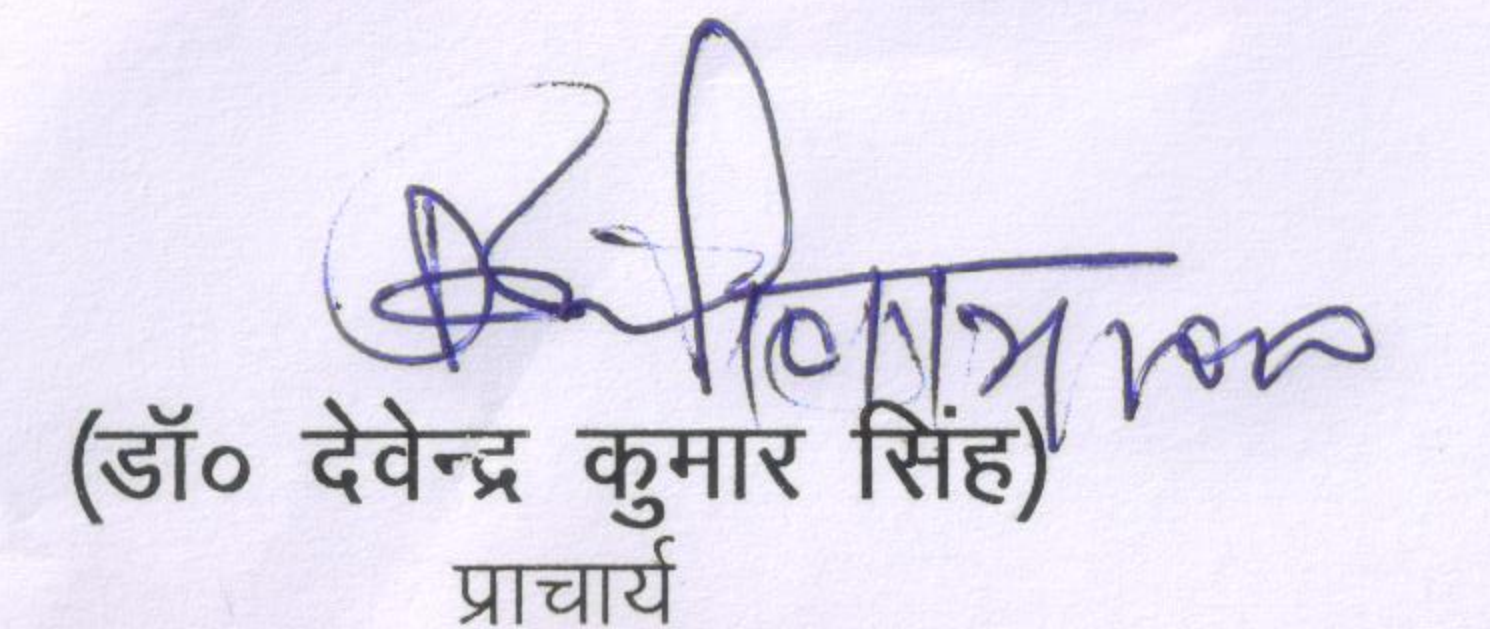 (डॉ० देवेन्द्र कुमार सिंह)
प्राचार्य